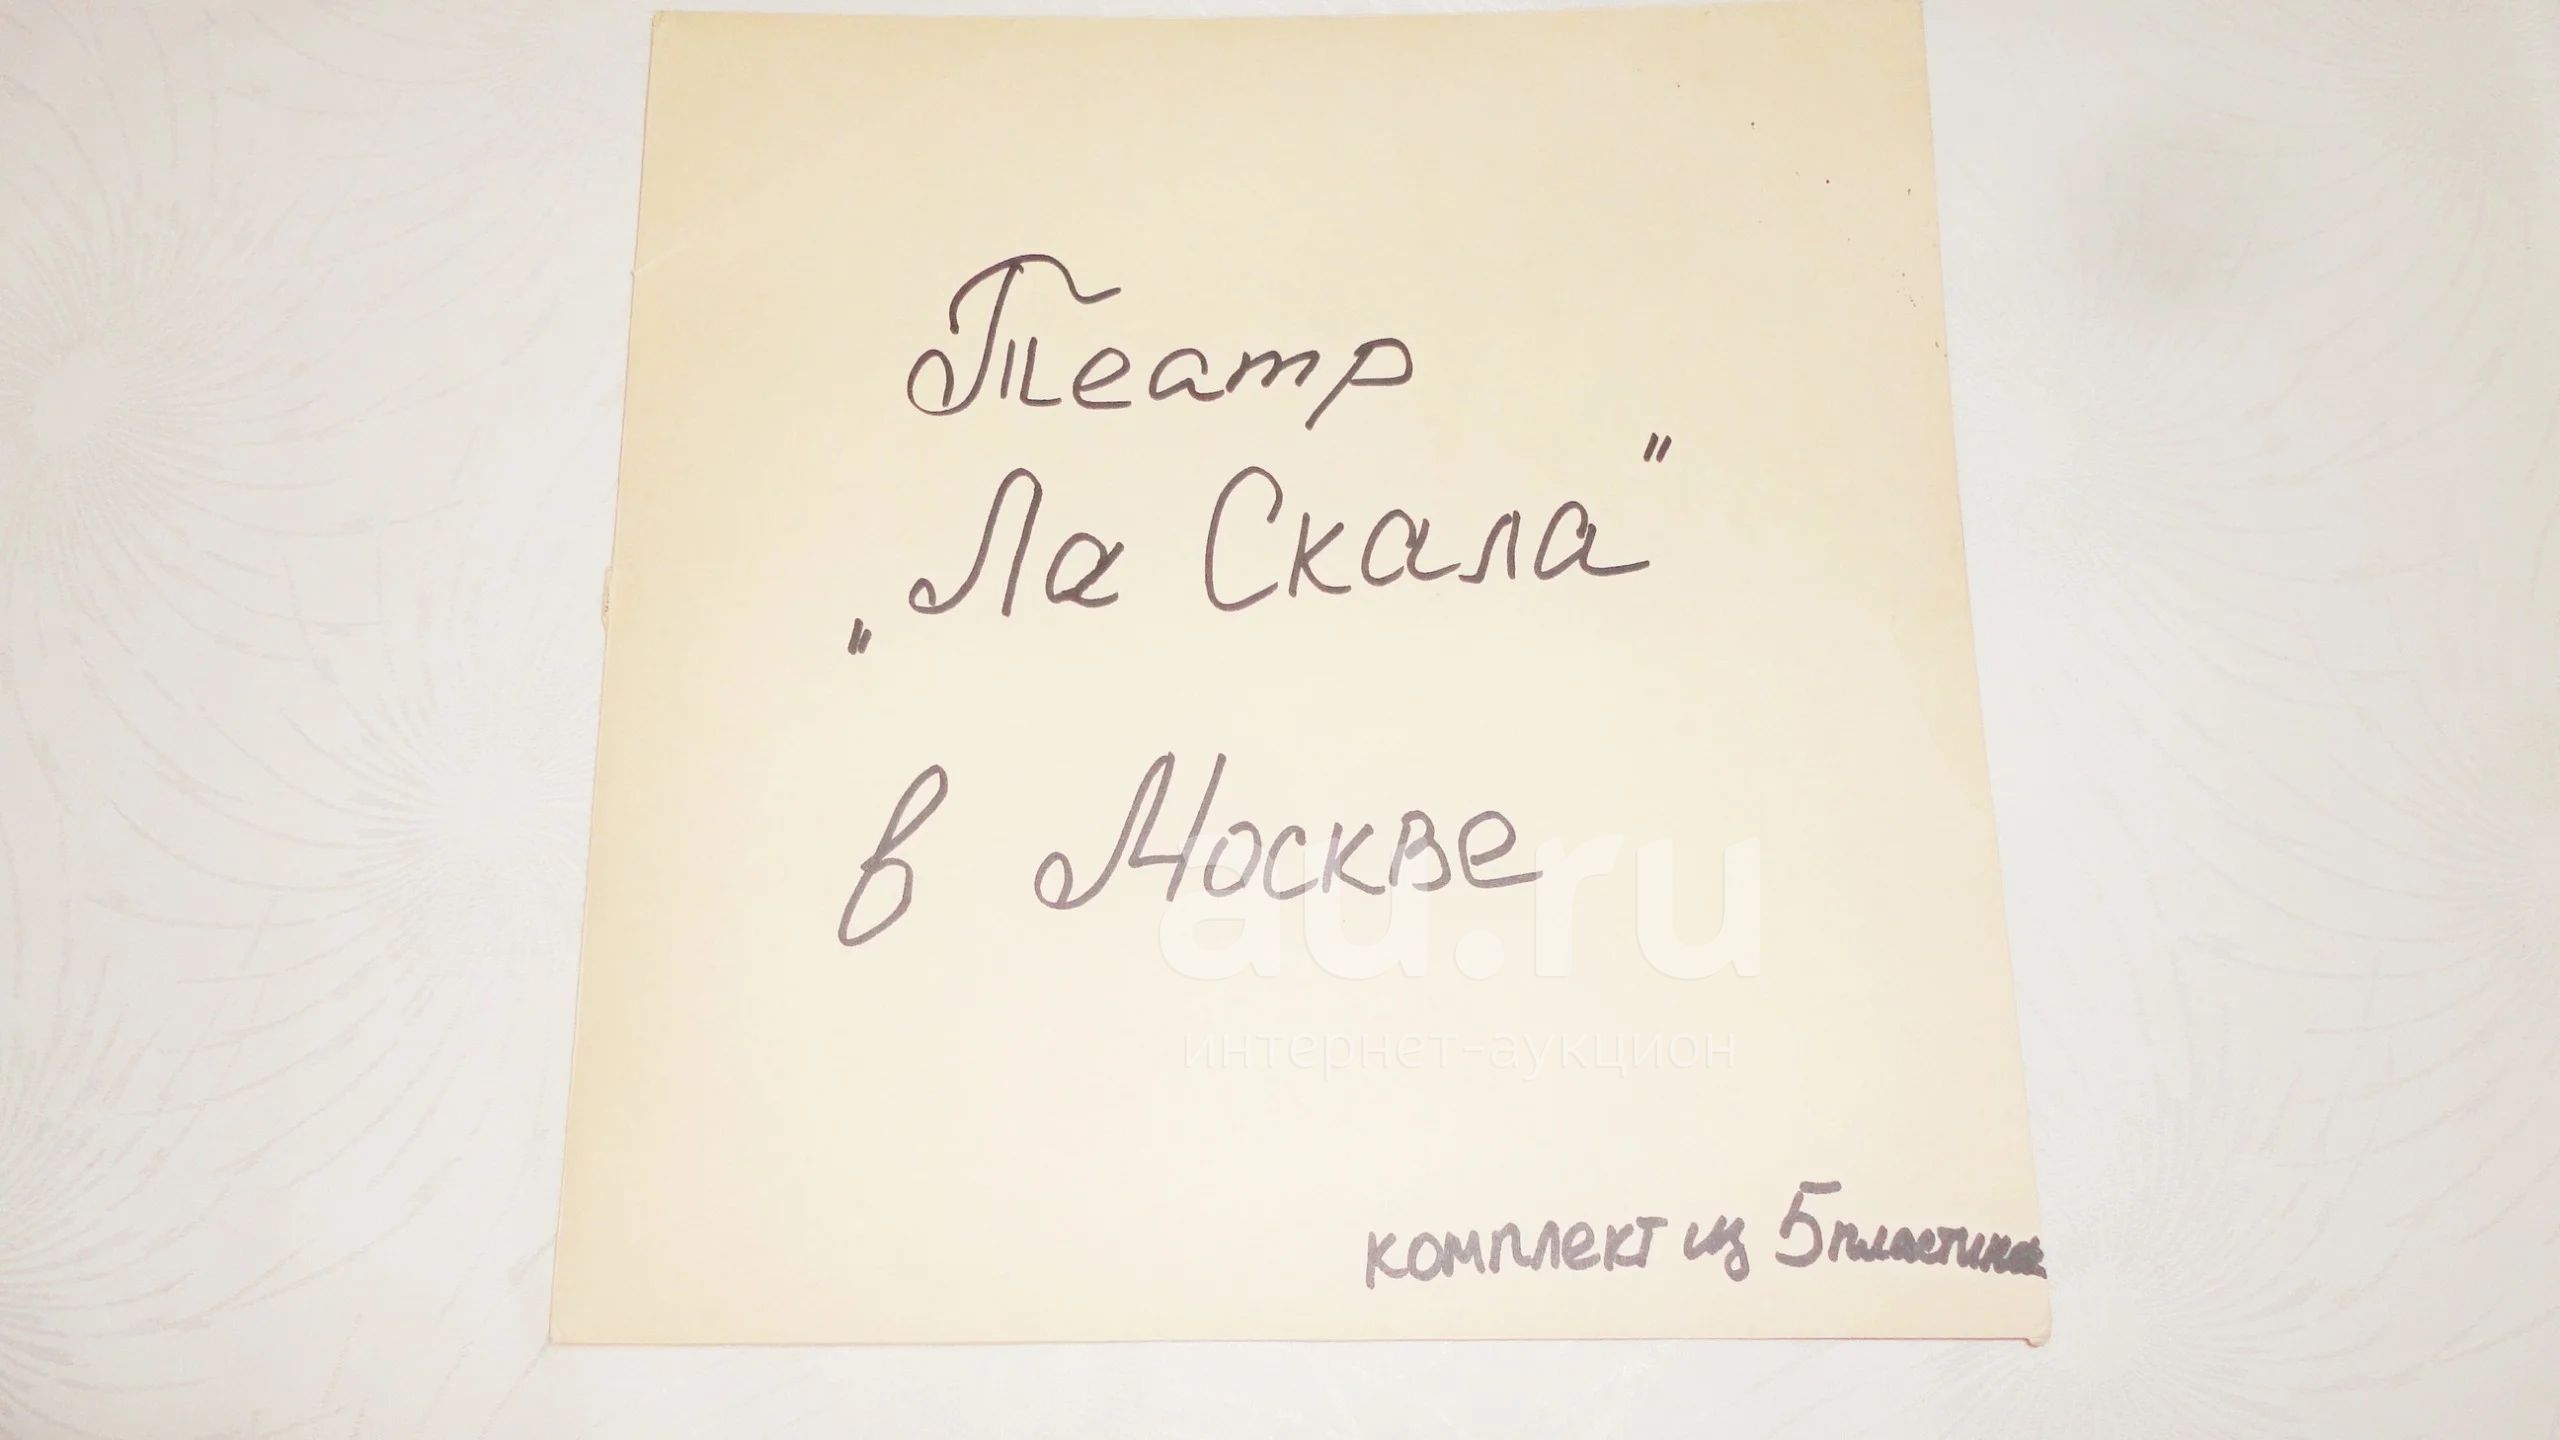 Театр
„Ла Скала"
в Москве
au.ru
интернет-аукцион
комплект из 5 пластинок